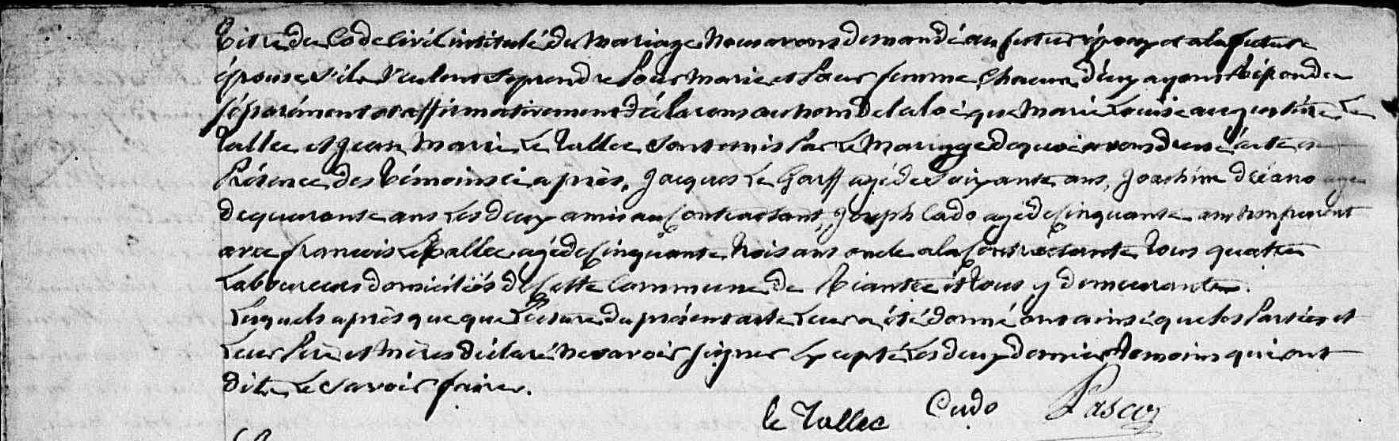 titre du Code Civil intitulé du mariage Nous avons demandé au futur époux et a la future
épouse s'ils veulent se prendre pour marie et pour femme, chacun d'eux ayant répondu
séparément et affirmativement déclarons au nom de la loi que marie Louise augustine Le
tallec et Jean Marie Le tallec sont unis par le mariage de quoi avons dressé acte en
présence des témoins ci après, Jacques Le Goff agé de soixante ans, Joachim
de quarante ans les deux amis au contractant, Joseph Cado agé de cinquante ans
avec françois Le tallec agé de cinquante trois ans oncle a la contractante tous quatre
Laboureurs domiciliés de cette commune de Riantec et tous y demeurante.
Lesquels après que que Lecture du présent acte Leur a été donné ont ainsi que les parties et
Leur père et mères déclaré ne savoir signer excepté les deux dernier témoins qui ont
dit le savoir faire.
le Tallec Cado Pasco